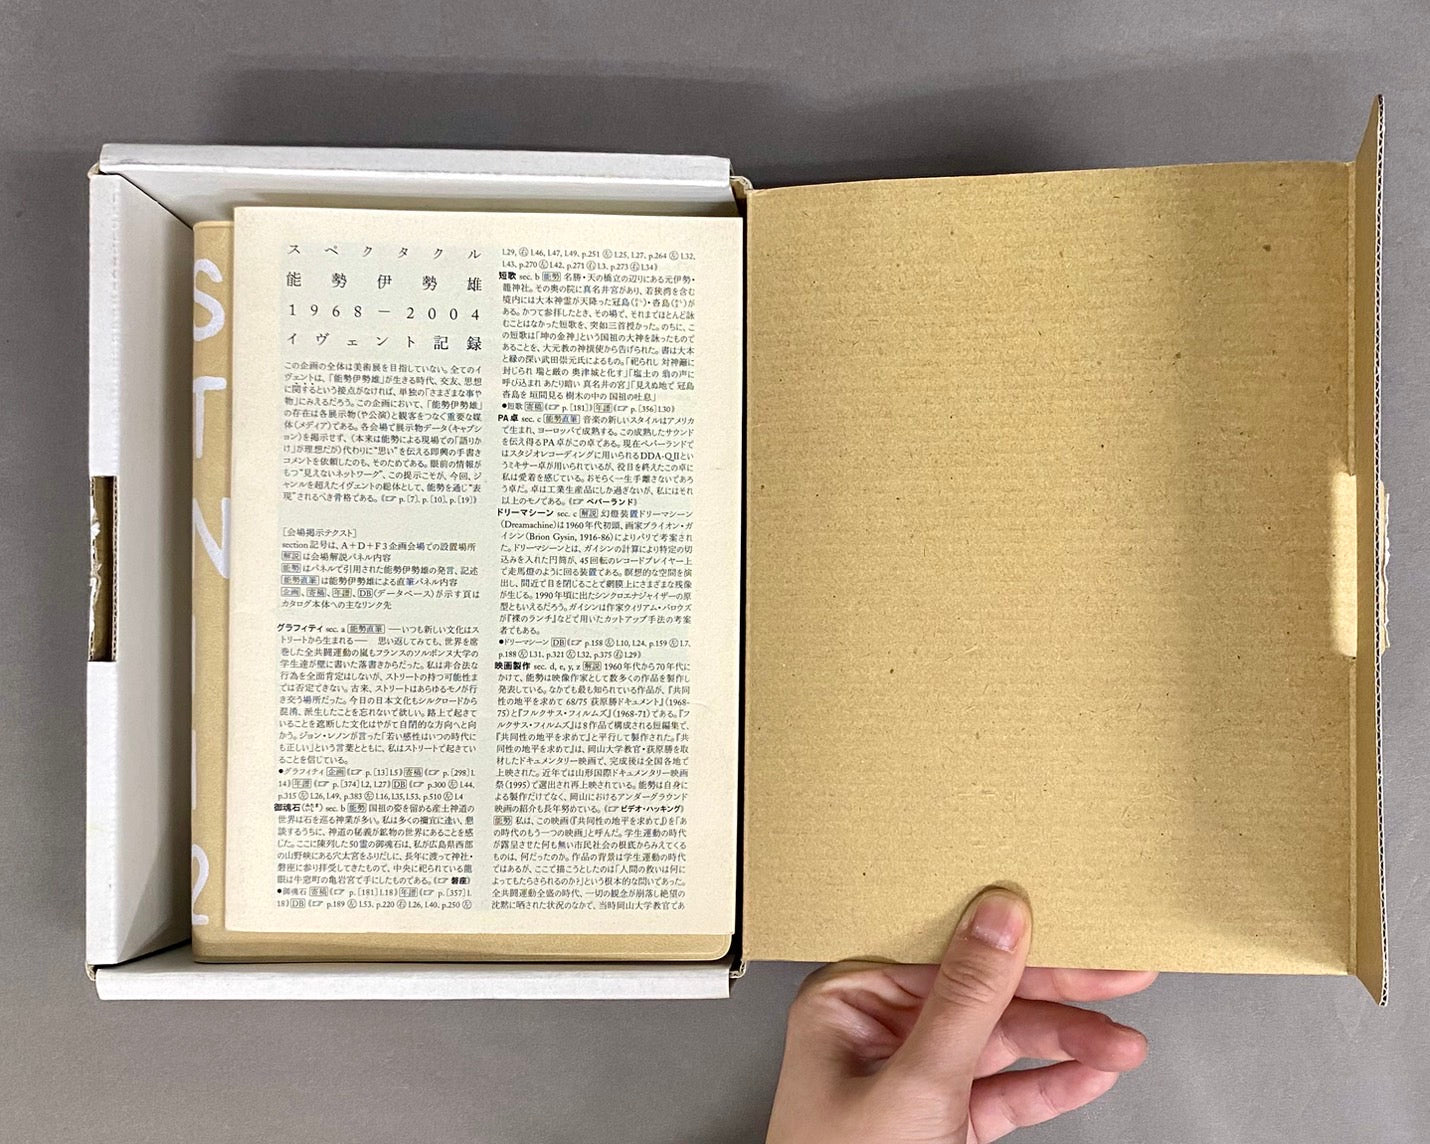 スペクタクル
能勢伊勢雄
1968－2004
イヴェント記録
この企画の全体は美術展を目指していない。全てのイ
ヴェントは、「能勢伊勢雄」が生きる時代、交友、思想
に関するという接点がなければ、単独の「さまざまな事や
物」にみえるだろう。この企画において、「能勢伊勢雄」
の存在は各展示物（や公演）と観客をつなぐ重要な媒
体（メディア）である。各会場で展示物データ（キャプシ
ョン）を掲示せず、（本来は能勢による現場での「語りか
け」が理想だが）代わりに“思い”を伝える即興の手書き
コメントを依頼したのも、そのためである。眼前の情報が
もつ“見えないネットワーク”、この提示こそが、今回、ジ
ャンルを超えたイヴェントの総体として、能勢を通じ“表
現”されるべき骨格である。《☞ p.[7]、p.[10]、p.[19]》
［会場掲示テキスト］
section記号は、A＋D＋F3企画会場での設置場所
解説は会場解説パネル内容
能勢はパネルで引用された能勢伊勢雄の発言、記述
能勢直筆は能勢伊勢雄による直筆パネル内容
企画、寄稿、年譜、DB（データベース）が示す頁は
カタログ本体への主なリンク先
グラフィティ sec. a 能勢直筆 ──いつも新しい文化はス
トリートから生まれる── 思い返してみても、世界を席
巻した全共闘運動の嵐もフランスのソルボンヌ大学の
学生達が壁に書いた落書きからだった。私は非合法な
行為を全面肯定はしないが、ストリートの持つ可能性ま
では否定できない。古来、ストリートはあらゆるモノが行
き交う場所だった。今日の日本文化もシルクロードから
混淆、派生したことを忘れないで欲しい。路上で起きて
いることを遮断した文化はやがて自閉的な方向へと向
かう。ジョン・レノンが言った「若い感性はいつの時代に
も正しい」という言葉とともに、私はストリートで起きてい
ることを信じている。
●グラフィティ 企画《☞ p.[13] l.5》寄稿《☞ p.[298] l.
14》年譜《☞ p.[374] l.2, l.27》DB《☞ p.300 左 l.44,
p.315 左 l.26, l.49, p.383 左 l.16, l.35, l.53, p.510 左 l.4
御魂石 sec. b 能勢 国祖の姿を留める産土神道の
世界は石を巡る神業が多い。私は多くの禰宜に逢い、懇
談するうちに、神道の秘義が鉱物の世界にあることを感
じた。ここに陳列した50霊の御魂石は、私が広島県西部
の山野峡にある穴太宮をふりだしに、長年に渡って神社・
磐座に参り拝受してきたもので、中央に祀られている龍
眼は牛窓町の亀岩宮で手にしたものである。《☞ 磐座》
●御魂石 寄稿《☞ p.[181] l.18》年譜《☞ p.[357] l.
18》DB《☞ p.189 左 l.53, p.220 右 l.26, l.40, p.250 左
l.29, 右 l.46, l.47, l.49, p.251 左 l.25, l.27, p.264 左 l.32,
l.43, p.270 左 l.42, p.271 右 l.3, p.273 右 l.34》
短歌 sec. b 能勢 名勝・天の橋立の辺りにある元伊勢・
籠神社。その奥の院に真名井宮があり、若狭湾を含む
境内には大本神霊が天降った冠島・沓島が
ある。かつて参拝したとき、その場で、それまではとんど詠
むことはなかった短歌を、突如三首授かった。のちに、こ
の短歌は「坤の金神」という国祖の大神を詠ったもので
あることを、大元教の神撰使から告げられた。書は大本
と縁の深い武田崇元氏によるもの。「祀られし 対神籬に
封じられ 瑞と厳の 奥津城と化す」「塩土の 翁の声に
呼び込まれ あたり暗い 真名井の宮」「見えぬ地で 冠島
沓島を 垣間見る 樹木の中の 国祖の吐息」
●短歌 寄稿《☞ p.[181]》年譜《☞ p.[356] l.30》
PA卓 sec. c 能勢直筆 音楽の新しいスタイルはアメリカ
で生まれ、ヨーロッパで成熟する。この成熟したサウンド
を伝え得るPA卓がこの卓である。現在ペパーランドで
はスタジオレコーディングに用いられるDDA-QⅡとい
うミキサー卓が用いられているが、役目を終えたこの卓に
私は愛着を感じている。おそらく一生手離さないであろ
う卓だ。卓は工業生産品にしか過ぎないが、私にはそれ
以上のモノである。《☞ ペパーランド》
ドリーマシーン sec. c 解説 幻燈装置ドリーマシーン
（Dreamachine）は1960年代初頭、画家ブライオン・ガ
イシン（Brion Gysin, 1916-86）によりパリで考案され
た。ドリーマシーンとは、ガイシンの計算により特定の切
込みを入れた円筒が、45回転のレコードプレイヤー上
で走馬燈のように回る装置である。瞑想的な空間を演
出し、間近で目を閉じることで網膜上にさまざまな残像
が生じる。1990年頃に出たシンクロエナジャイザーの原
型ともいえるだろう。ガイシンは作家ウィリアム・バロウズ
が『裸のランチ』などで用いたカットアップ手法の考案
者でもある。
●ドリーマシーン DB《☞ p.158 左 l.10, l.24, p.159 左 l.7,
p.188 左 l.31, p.321 左 l.32, p.375 右 l.29》
映画製作 sec. d, e, y, z 解説 1960年代から70年代に
かけて、能勢は映像作家として数多くの作品を製作し
発表している。なかでも最も知られている作品が、『共同
性の地平を求めて 68/75 荻原勝ドキュメント』（1968-
75）と『フルクサス・フィルムズ』（1968-71）である。『フ
ルクサス・フィルムズ』は8作品で構成される短編集で、
『共同性の地平を求めて』と平行して製作された。『共
同性の地平を求めて』は、岡山大学教官・荻原勝を取
材したドキュメンタリー映画で、完成後は全国各地で
上映された。近年では山形国際ドキュメンタリー映画
祭（1995）で選出され再上映されている。能勢は自身に
よる製作だけでなく、岡山におけるアンダーグラウンド
映画の紹介も長年努めている。《☞ ビデオ・ハッキング》
能勢 私は、この映画（『共同性の地平を求めて』）を「あ
の時代のもう一つの映画」と呼んだ。学生運動の時代
が露呈させた何も無い市民社会の根底からみえてくる
ものは、何だったのか。作品の背景は学生運動の時代
ではあるが、ここで描こうとしたのは「人間の救いは何に
よってもたらされるのか？」という根本的な問いであった。
全共闘運動全盛の時代、一切の観念が崩落し絶望の
沈黙に晒された状況のなかで、当時岡山大学教官であ